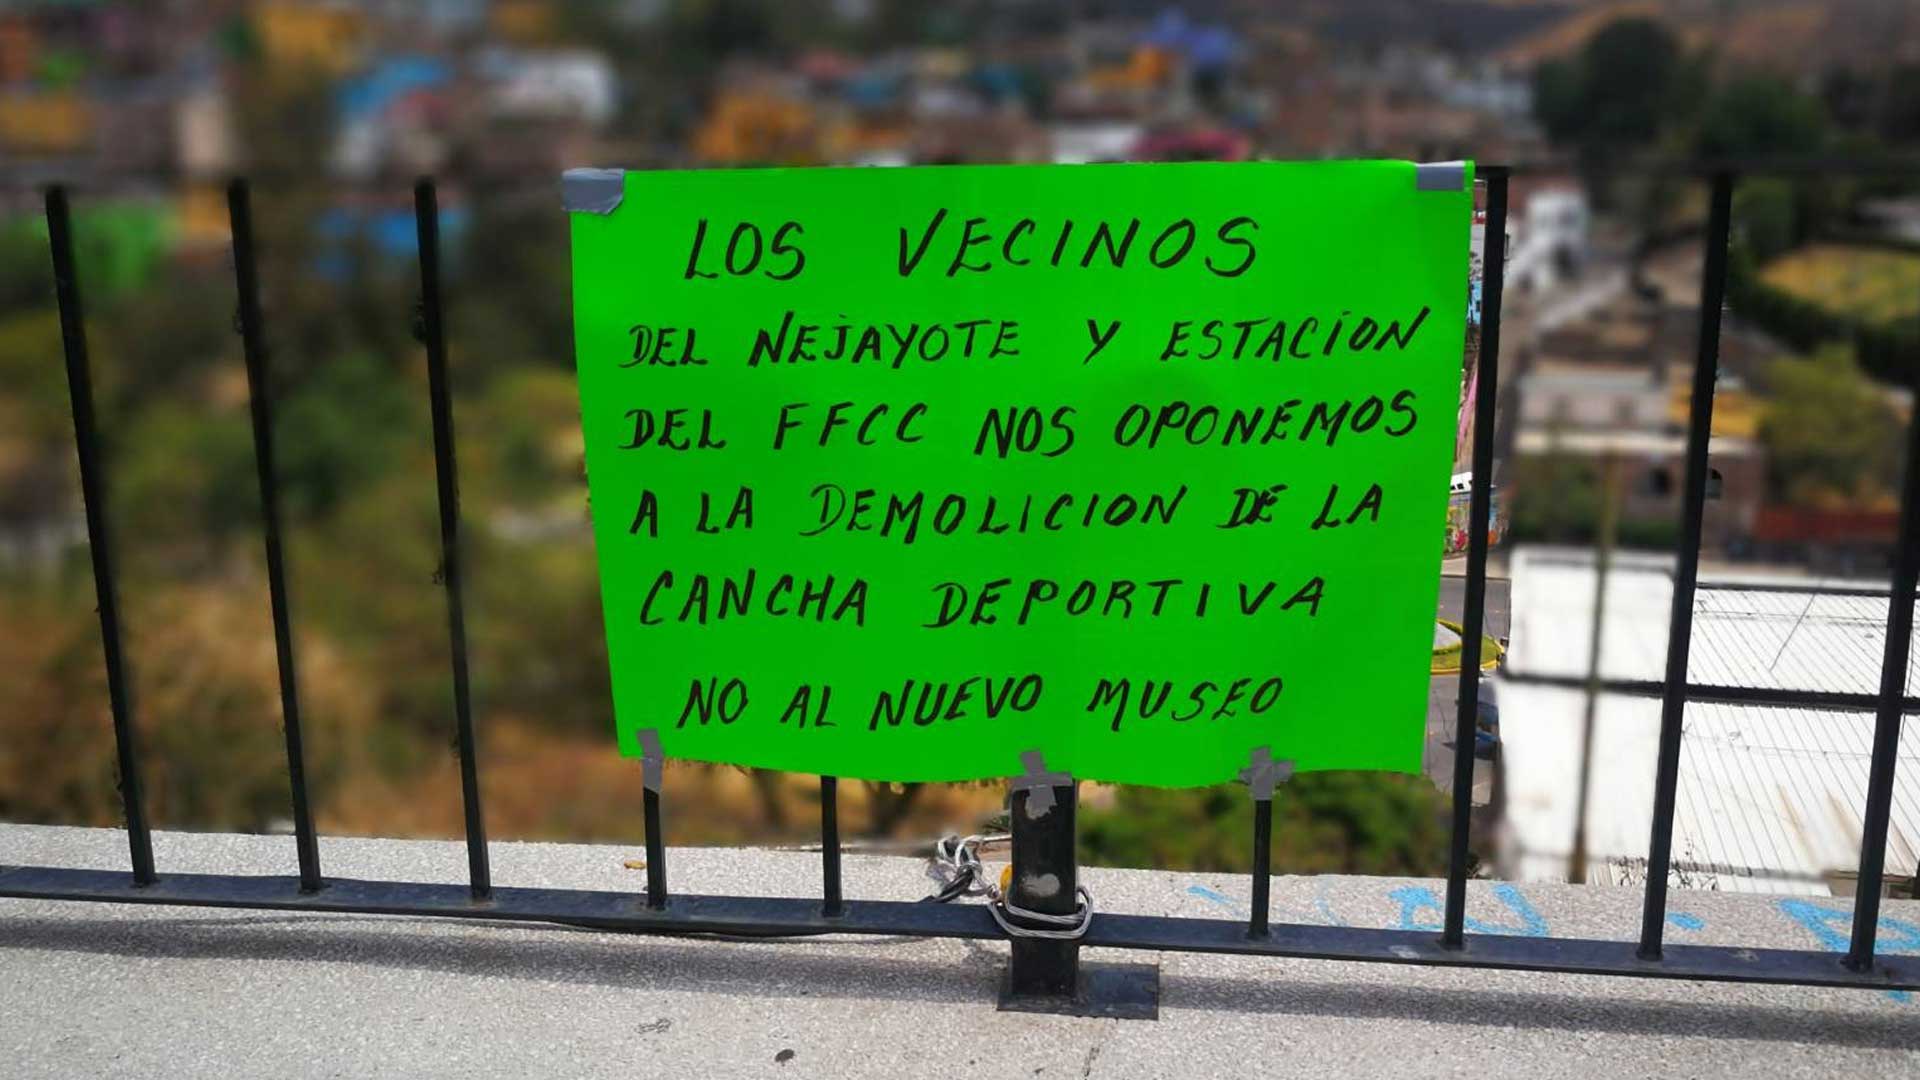 LOS VECINOS
DEL NEJAYOTE Y ESTACION
DEL FFCC NOS OPONEMOS
A LA DEMOLICION DE LA
CANCHA DEPORTIVA
NO AL NUEVO MUSEO